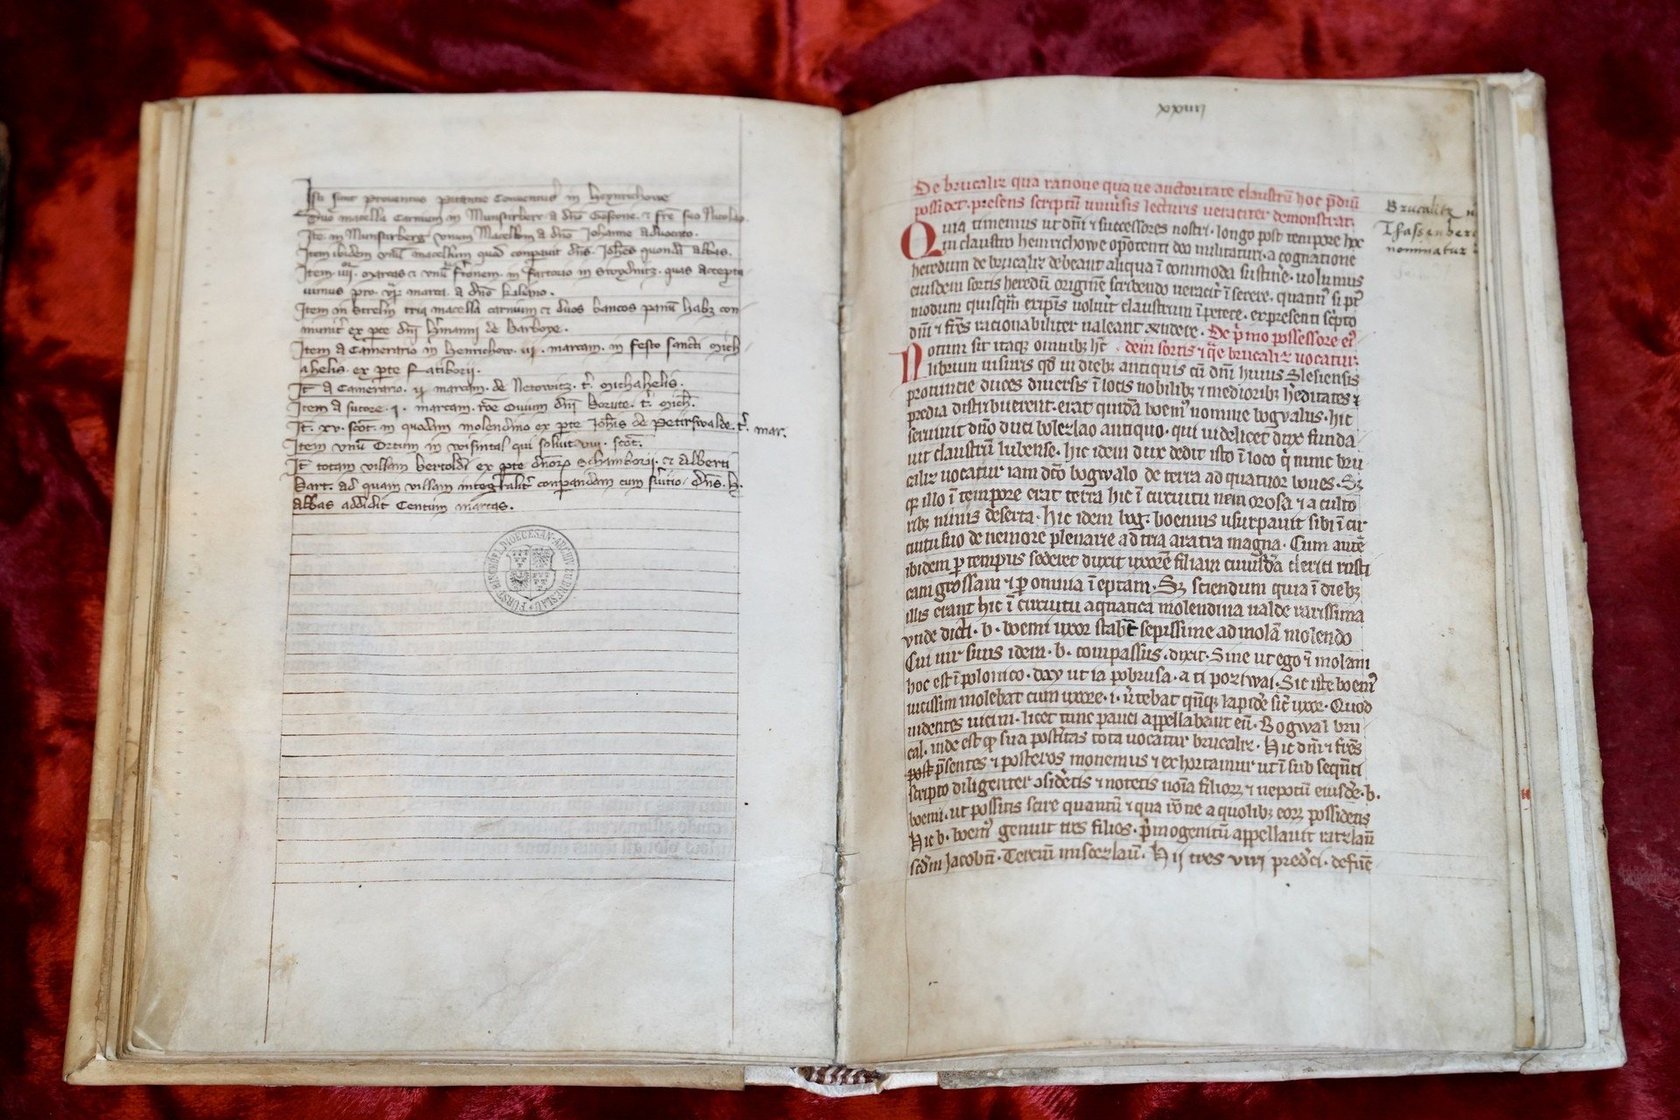 Isti sunt proventus pitantie Conventus in Heynrichow
Item in Munsterberg unum Macellum a dno Johanne advocato.
Item ibidem unu macellum quod conparuit dns Johes quonda abbas.
uimus pro marca a dno kiliano.
Item in Strelin tria macella carnium et duos bancos panu habz con
munit ex pte dni hmanni de Barboye.
Item a Camerario in henrichow iij marcam in festo sancti Mich
ahelis ex pte Ratiborii.
It a Camerario ij marcam de Netowitz t Michahelis.
Item a sutore i marcam
It xv scot in quodam molendino ex parte Johis de Petirswalde t mar.
Item unu Ortum in qui soluit viii scot
It totam villam bertoldi ex pte dnorz Schamborii et Alberti
Bart. ad quam villam integraliter conparandam cum dns h.
abbas addidit Centum marcas.
FÜRSTBISCHÖFL. DIOECESAN-ARCHIV ZU BRESLAU
xxiiij
De brucaliz qua ratione qua ue auctoritate claustru hoc pdiu
possidet. presens scriptu uniusis lecturis ueraciter demonstrat.
Brucalitz
Quia timemus ut dni et successores nostri longo post tempore hoc
Thassenberg
in claustro heinrichowe oportent deo militaturi a cognatione
nominatur
heredum de brucaliz debeant aliqua i commoda sustine. uolumus
eiusdem sortis heredu origine scribendo ueracit i serere. quatin si pr
modum quisqm ex ipis voluit claustrum i petere. ex presenti scpto
dni et fres rationabiliter ualeant rndere. De pmo possessore ei
Notum sit itaqz omnibz hc dem sortis et qe brucaliz uocatur.
librum uisuris qd in diebz antiquis cu dni huius Slesiensis
prouincie duces diuersis i locis nobilibz et mediocribz heditates et
predia distribuerent. erat quida boemus nomine bogualus. hic
seruiuit dno duci bolezlao antiquo. qui uidelicet dux funda
uit claustru lubense. hic idem dux dedit isto i loco q nunc bru
caliz uocatur iam dco bogwalo de terra ad quatuor boues. Sz
qz illo i tempore erat terra hic i circuitu nemorosa et a culto
ribz nimis deserta. hic idem bog. boemus usurpauit sibi i cir
cuitu suo de nemore plenarie ad tria aratra magna. Cum aute
ibidem p tempus sederet duxit uxore filiam cuiusda clerici rusti
cam grossam et p omnia i eptam. Sz sciendum quia i diebz
illis erant hic i circuitu aquatica molendina ualde rarissima
vnde dicti b. boemi uxor stabat sepissime ad mola molendo
Cui uir suus idem b. compassus. dixit. Sine ut ego et molam
hoc est i polonico. day ut ia pobrusa. a ti poziwai. Sic iste boem
uicissim molebat cum uxore. i. utebat qnqz lapide sic uxor. Quod
uidentes uicini. licet tunc pauci appellabant eu. Bogwal bru
cal. inde est qz sua posteritas tota uocatur brucaliz. Hic dni et fres
post psentes et posteros monemus et exhortamur ut i sub sequenti
scripto diligenter osidetis et notetis noia filiorz et nepotu eiusde b.
boemi. ut possitis scire quantu et qua rone a quolibz eorz possidetis
Hic b. boem genuit tres filios. pmogenitu appellauit raczlau
scdm Jacobu. Terciu mscezlau. Hij tres viri predci. defuncto